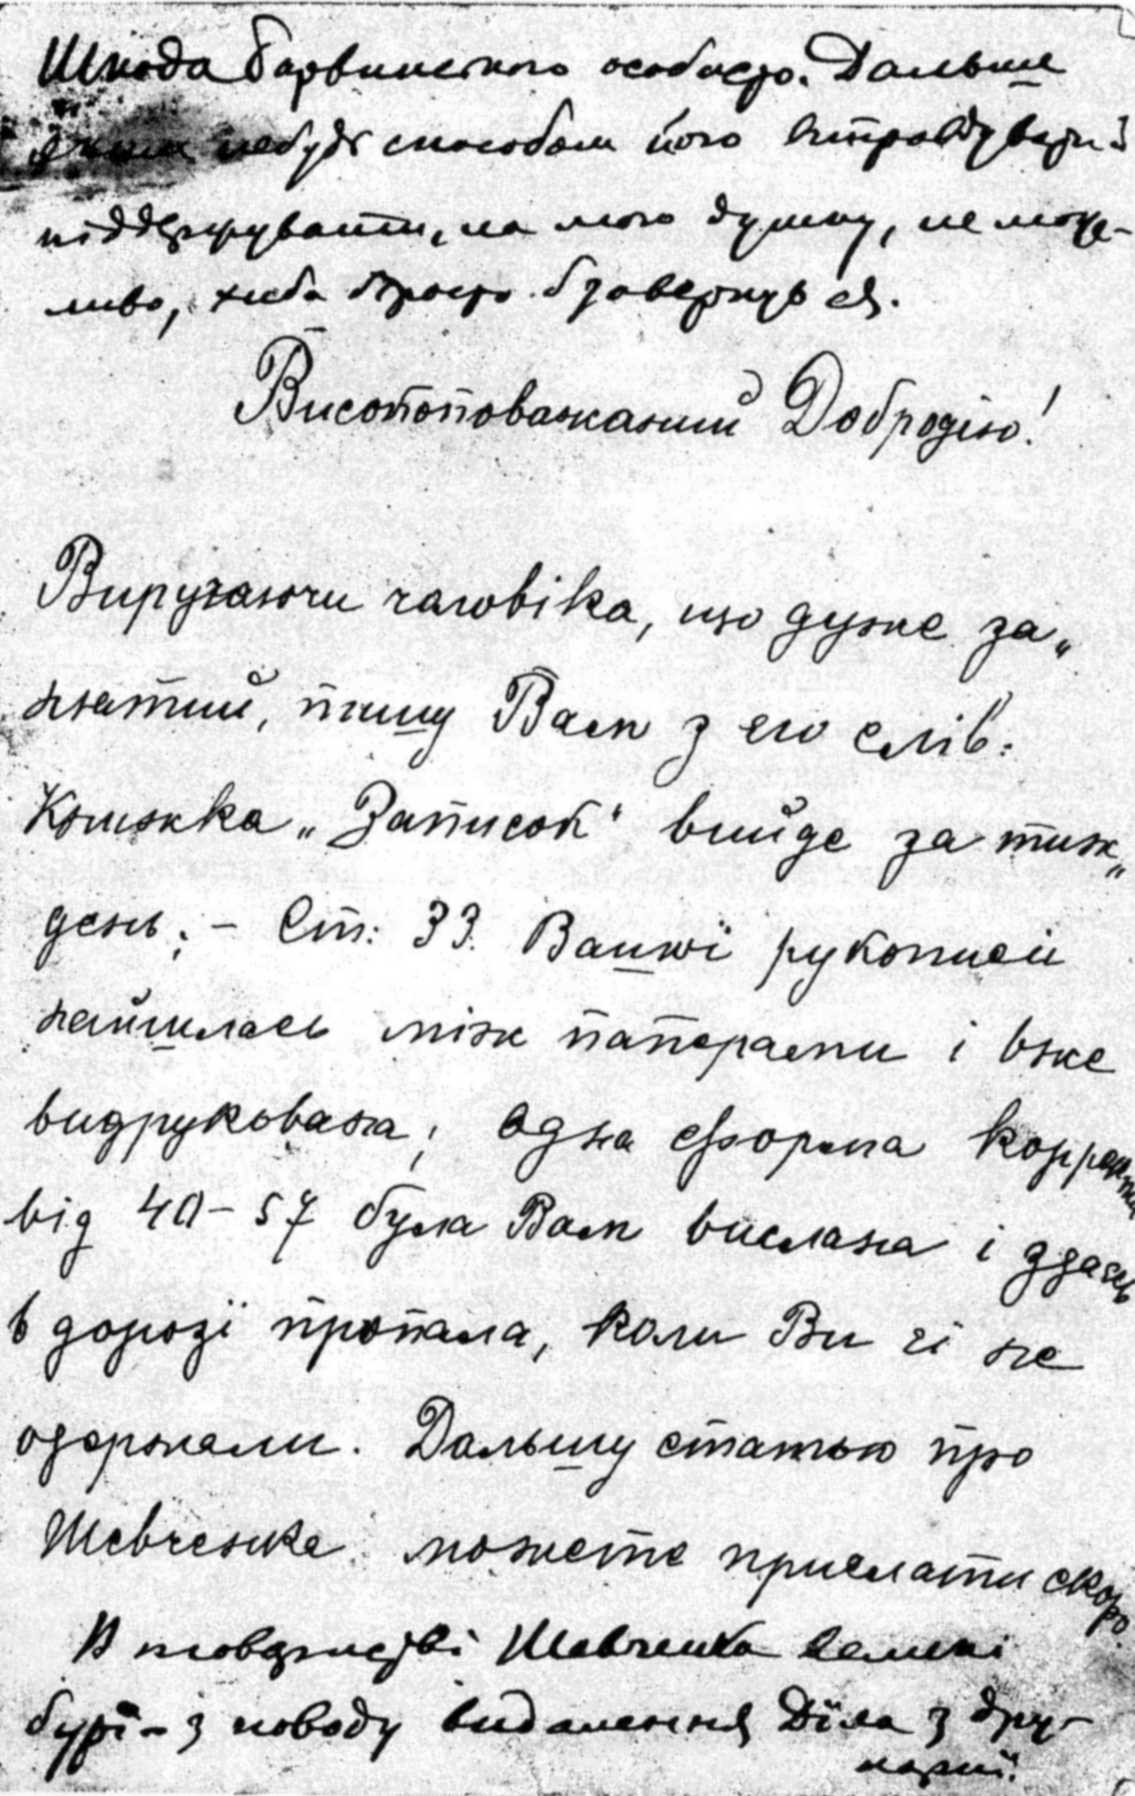 Шкода Барвинського особисто. Дальше
яким небудь способом його виправдувати і
піддержувати, на мою думку, не мож-
ливо, хиба просто завернувся.
Високоповажаний Добродію!
Виручаючи чоловіка, що дуже за„
нятий, пишу Вам з его слів:
Книжка „Записок“ вийде за тиж„
день; – Ст: 33. Вашої рукописи
найшлась між паперами і вже
видрукована; одна форма корректи
від 40 – 57 була Вам вислана і здаєсь
в дорозї пропала, коли Ви єї не
одержали. Дальшу статью про
Шевченка можете прислати скоро.
В товаристві Шевченка великі
бурі – з поводу видалення Діла з дру-
карні.